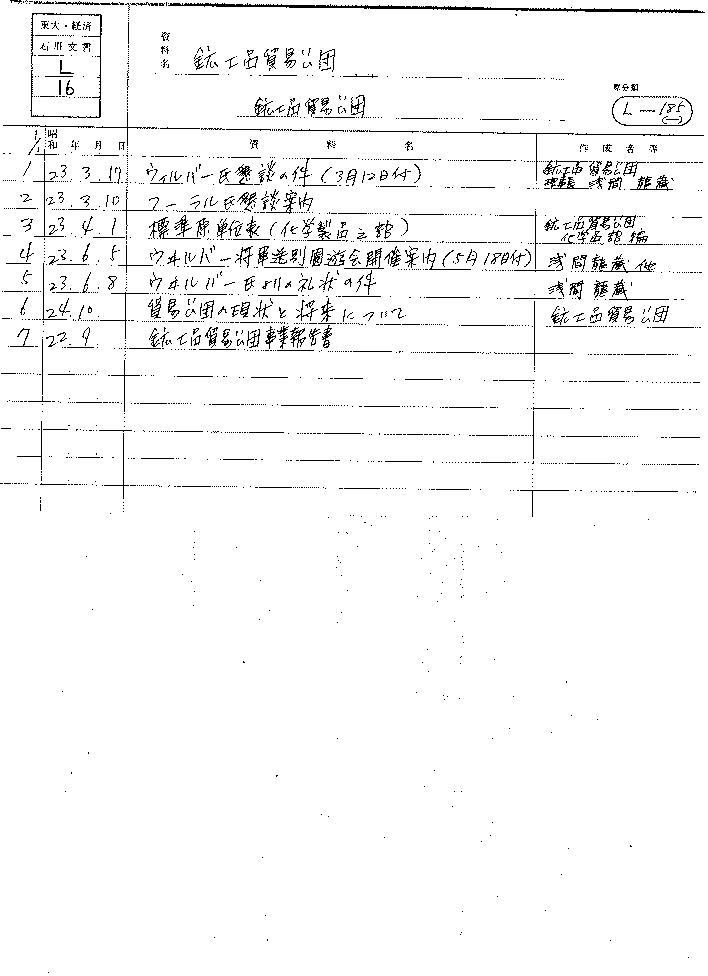 東大・経済
石川文書
L
16
資料名 鉱工品貿易公団
鉱工品貿易公団
原分類
L-185
1/1 昭和 年 月 日 資料名 作成者等
1 23.3.17 ウィルバー氏懇談の件(3月12日付) 鉱工品貿易公団
浅間龍蔵
2 23.3.10 フーラル氏懇談案内
3 23.4.1 標準原単位表(化学製品之部) 鉱工品貿易公団
化学品部編
4 23.6.5 ウオルバー将軍送別園遊会開催案内(5月18日付) 浅間龍蔵他
5 23.6.8 ウオルバー氏よりの礼状の件 浅間龍蔵
6 24.10 貿易公団の現状と将来について 鉱工品貿易公団
7 22.9 鉱工品貿易公団事業報告書